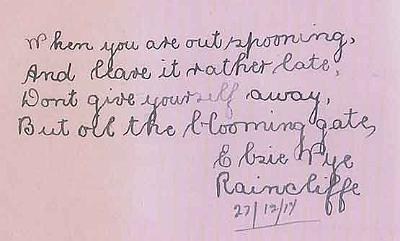 When you are out spooning,
And leave it rather late,
Dont give yourself away,
But oil the blooming gate,
Elsie Pye
Raincliffe
27/12/17